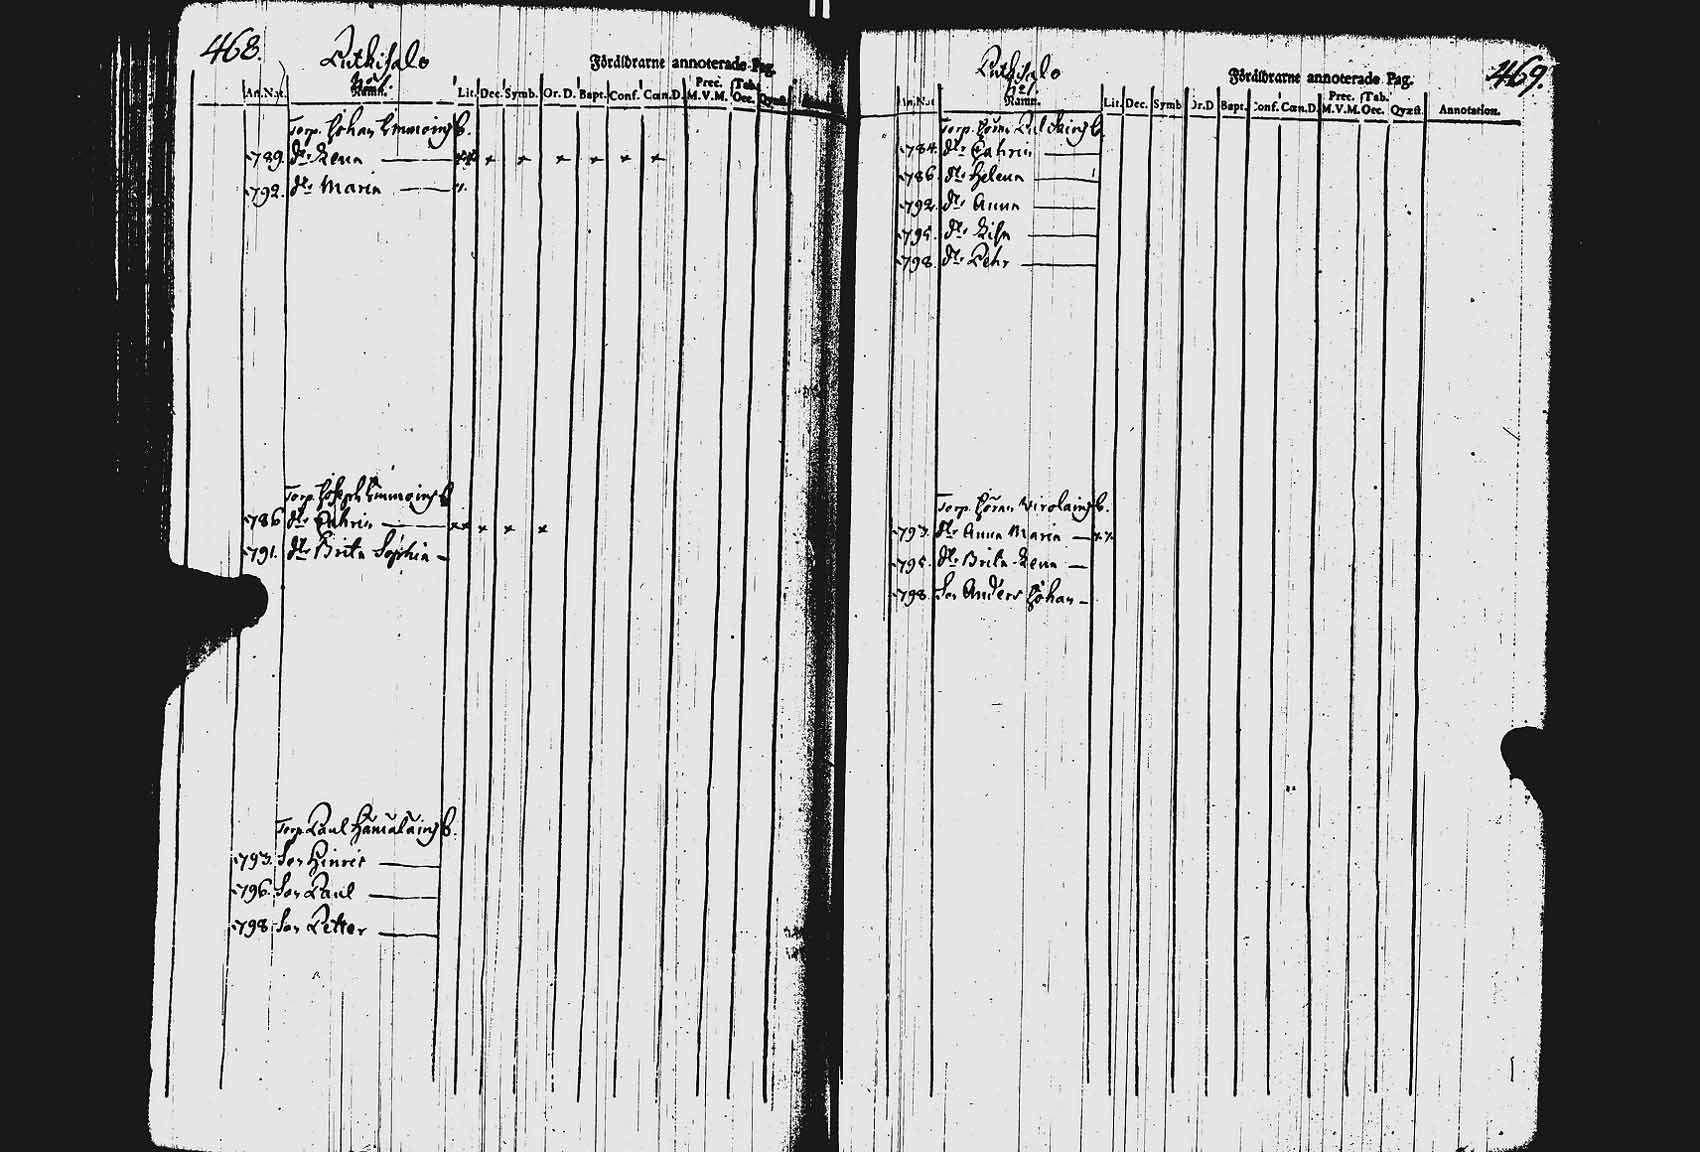 468.
Putkisalo
No 1.
Föräldrarne annoterade Pag.
An. Nat. Namn. Lit. Dec. Symb. Or. D. Bapt. Conf. Cœn. D. Prec. M.V.M. Tab. Oec. Qvæst.
Torp. Johan Immoing B.
789. dr Lena
792. dr Maria
Torp. Joseph Immoing B
786 dr Cathrin
791. dr Brita Sophia
Torp. Paul Hämäläing B.
793. Son Hinric
796. Son Paul
798 Son Petter
469.
Putkisalo
No 1.
Föräldrarne annoterade Pag.
An. Nat Namn. Lit. Dec. Symb Or. D Bapt. Conf. Cœn. D. Prec. M.V.M. Tab. Oec. Qvæst. Annotation.
Torp. Göran B.
784. dr Cathrin
786. dr Helena
792. dr Anna
795. dr Lisa
798. dr Pehr
Torp. Göran Wirolaing B.
793. dr Anna Maria
795. dr Brita Lena
798. Son Anders Johan